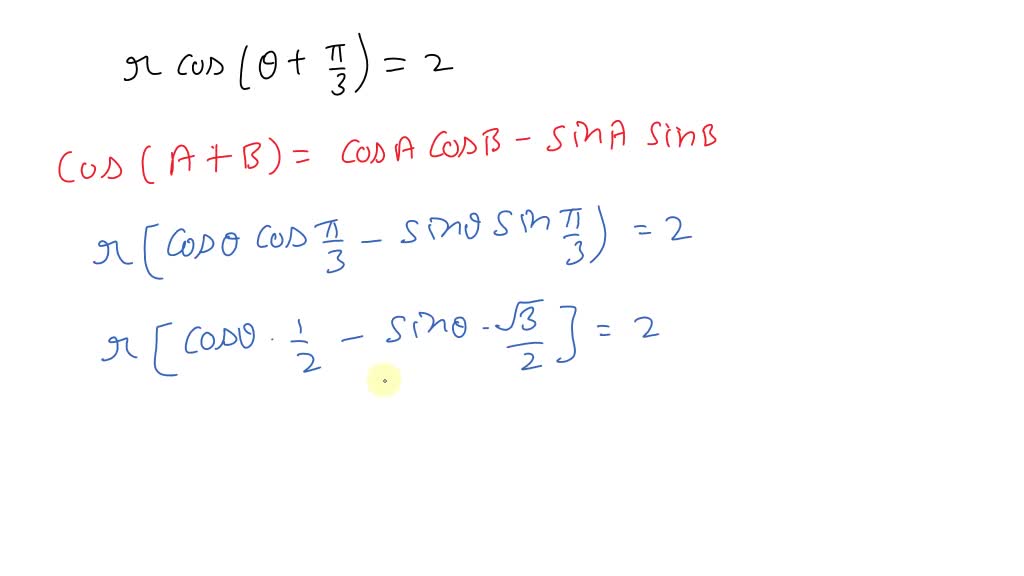 r cos(θ + π/3) = 2
Cos (A + B) = CosA CosB - SinA SinB
r[Cosθ Cos π/3 - Sinθ Sin π/3) = 2
r[Cosθ · 1/2 - Sinθ · √3/2] = 2